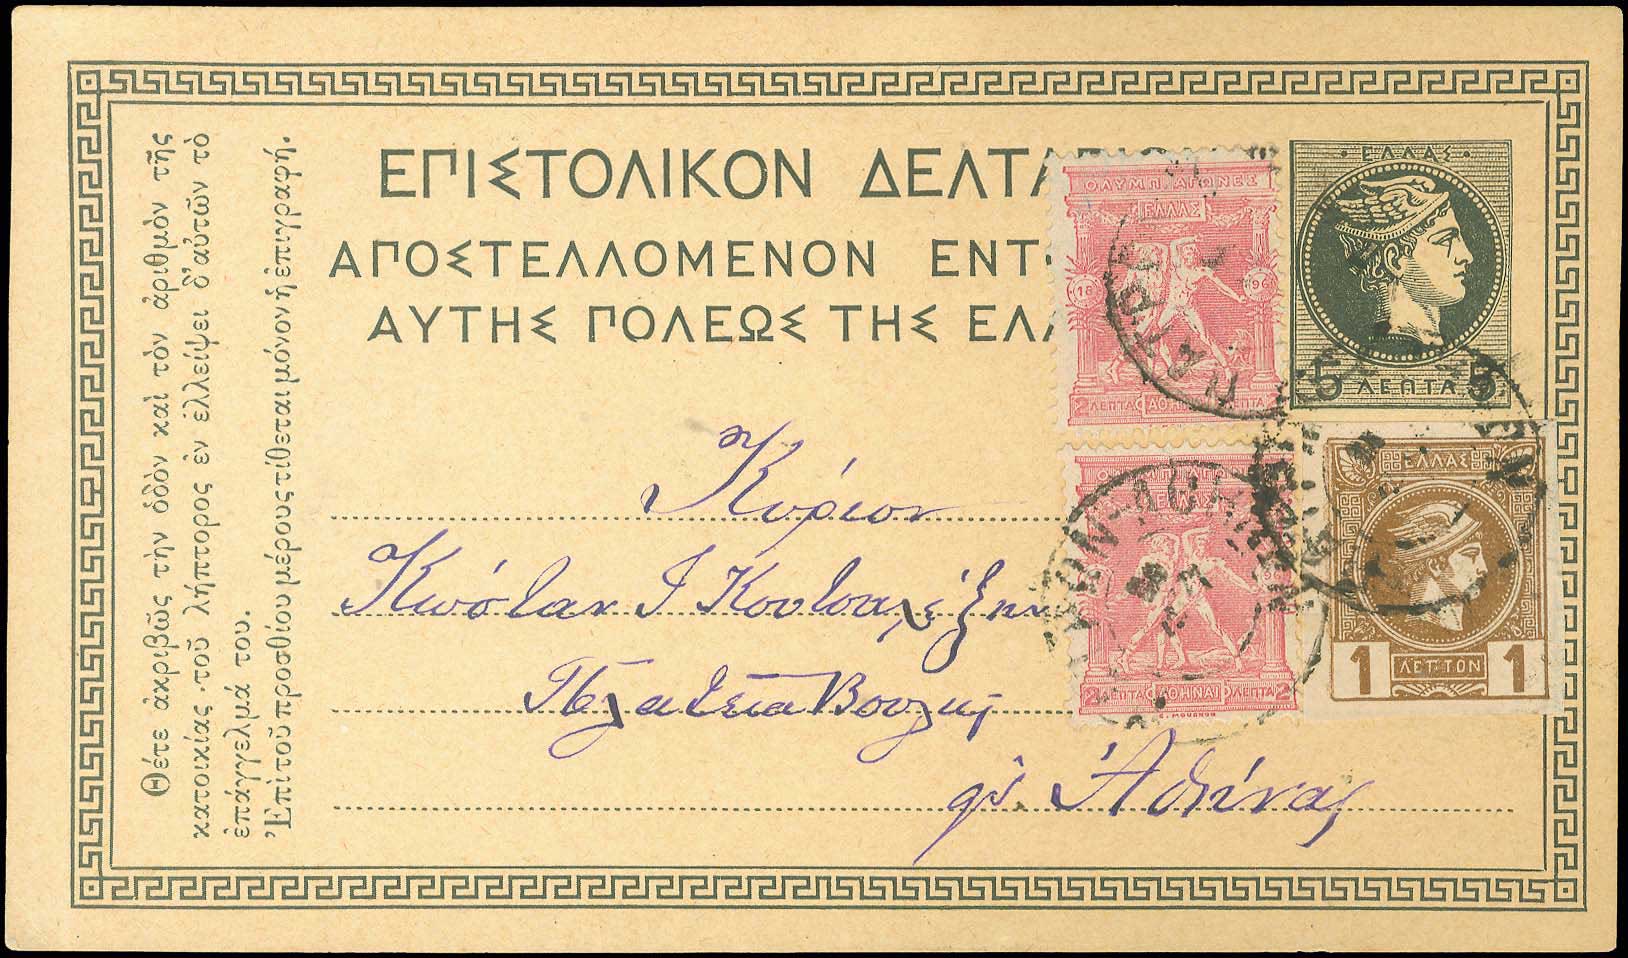 Θέτε ἀκριβῶς τὴν ὁδὸν καὶ τὸν ἀριθμὸν τῆς
κατοικίας τοῦ λήπτορος ἐν ἐλλείψει δ' αὐτῶν τὸ
ἐπάγγελμά του.
Ἐπὶ τοῦ προσθίου μέρους τίθεται μόνον ἡ ἐπιγραφή.
ΕΠΙΣΤΟΛΙΚΟΝ ΔΕΛΤΑ
ΑΠΟΣΤΕΛΛΟΜΕΝΟΝ ΕΝΤ
ΑΥΤΗΣ ΠΟΛΕΩΣ ΤΗΣ ΕΛΛ
ΟΛΥΜΠ. ΑΓΩΝΕΣ
ΕΛΛΑΣ
18 96
2 ΛΕΠΤΑ ΑΘΗΝΑΙ ΛΕΠΤΑ
ΕΛΛΑΣ
5 ΛΕΠΤΑ 5
2 ΛΕΠΤΑ ΑΘΗΝΑΙ ΛΕΠΤΑ 2
E. MOUCHON
ΕΛΛΑΣ
1 ΛΕΠΤΟΝ 1
ΠΑΤΡΑΙ
Κύριον
Κώσταν Ι Κουτσαλέξην
Πλατεῖα Βουλῆς
εἰς Ἀθήνας